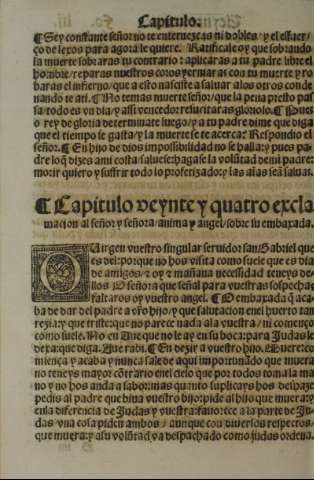 Capitulo.
¶ Sey constante señor no te enternezcas ni dobles / y el esfuer/
ço de lexos para agora le quiere. Ratificale oy que sobrando
la muerte sobraras tu contrario: aplicaras a tu padre libre el
hombre / reparas nuestros coros yermaras con tu muerte / y ro
baras el infierno / que a esto naciste a saluar a los otros conde
nando te a ti. ¶ No temas muerte señor que la pena presto pas
sa / todo es vn dia / y assi vencedor resucitaras glorioso. ¶ Pues
rey de gloria determinate luego / y a tu padre dime que diga
que el tiempo se gasta / y la muerte se te acerca? Respondio el
señor. ¶ En hijo de dios impossibilidad no se halla: y pues pa
dre lo q̃ dizes ami costa / saluese: hagase la volũtad de mi padre:
morir quiero y suffrir todo lo profetizado: y las alas señ saluat.
¶ Capitulo veynte y quatro excla
macion al señor y señora / anima y angel / sobre su embaxada.
O Uirgen vuestro singular seruidor san Gabriel que
es del: porque no hos visita como suele que es dia
de amigos / e oy e mañana necessidad teneys de
llos O señora que señal para vuestras sospechas
faltaros oy vuestro angel. ¶ O embaxada q̃ aca
ba de dar del padre a vr̃o hijo / y que salutacion en el huerto tan
rezia: y que triste: que no parece nada a la vuestra / ni començo
como suele. No en Aue que no le ay en su boca: para Judas le
dexa que diga. Aue rabi. ¶ En dezir a vuestro hijo. Muere: co
miença y acaba y nunca sale de aqui importunãdo que muera
no teneys mayor cõtrario en el cielo que por todos toma la ma
no y no hos anda a sabor: mas quanto suplicays hos despaze
pedis al padre que biua vuestro hijo: pide al hijo que muera: y
en la diferencia de Judas y vuestra: fauorece a la parte de Ju-
das / vna cosa piden ambos / aunque con diuersos respectos /
que muera: y a su volũtad va despachado como judas ordena.